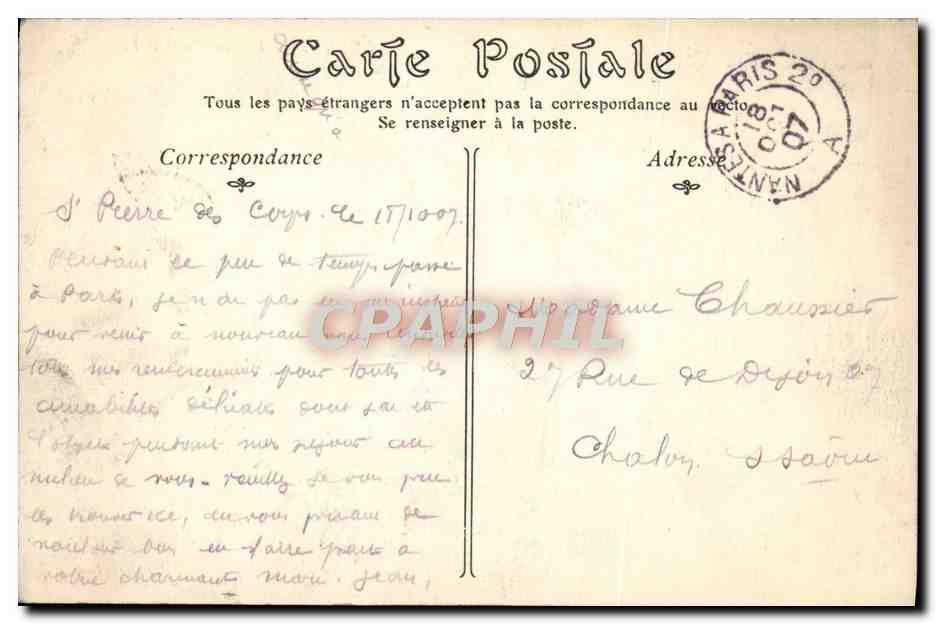 Carte Postale
Tous les pays étrangers n'acceptent pas la correspondance au recto
Se renseigner à la poste.
Correspondance
Adresse
NANTES A PARIS 2º
18
OCT
07
A
St Pierre des Corps. le
Pendant le peu de temps passé
à Paris, je n'ai pas
pour venir à nouveau vous
tous mes remerciements pour toutes les
amabilités délicates dont j'ai été
l'objet pendant mon séjour au
milieu de vous. veuillez je vous prie
les en vous priant de
bien en faire part à
votre charmant mari. Jean,
Madame Chaussier
27 Rue de Dijon 27
Chalon s Saône
CPAPHIL